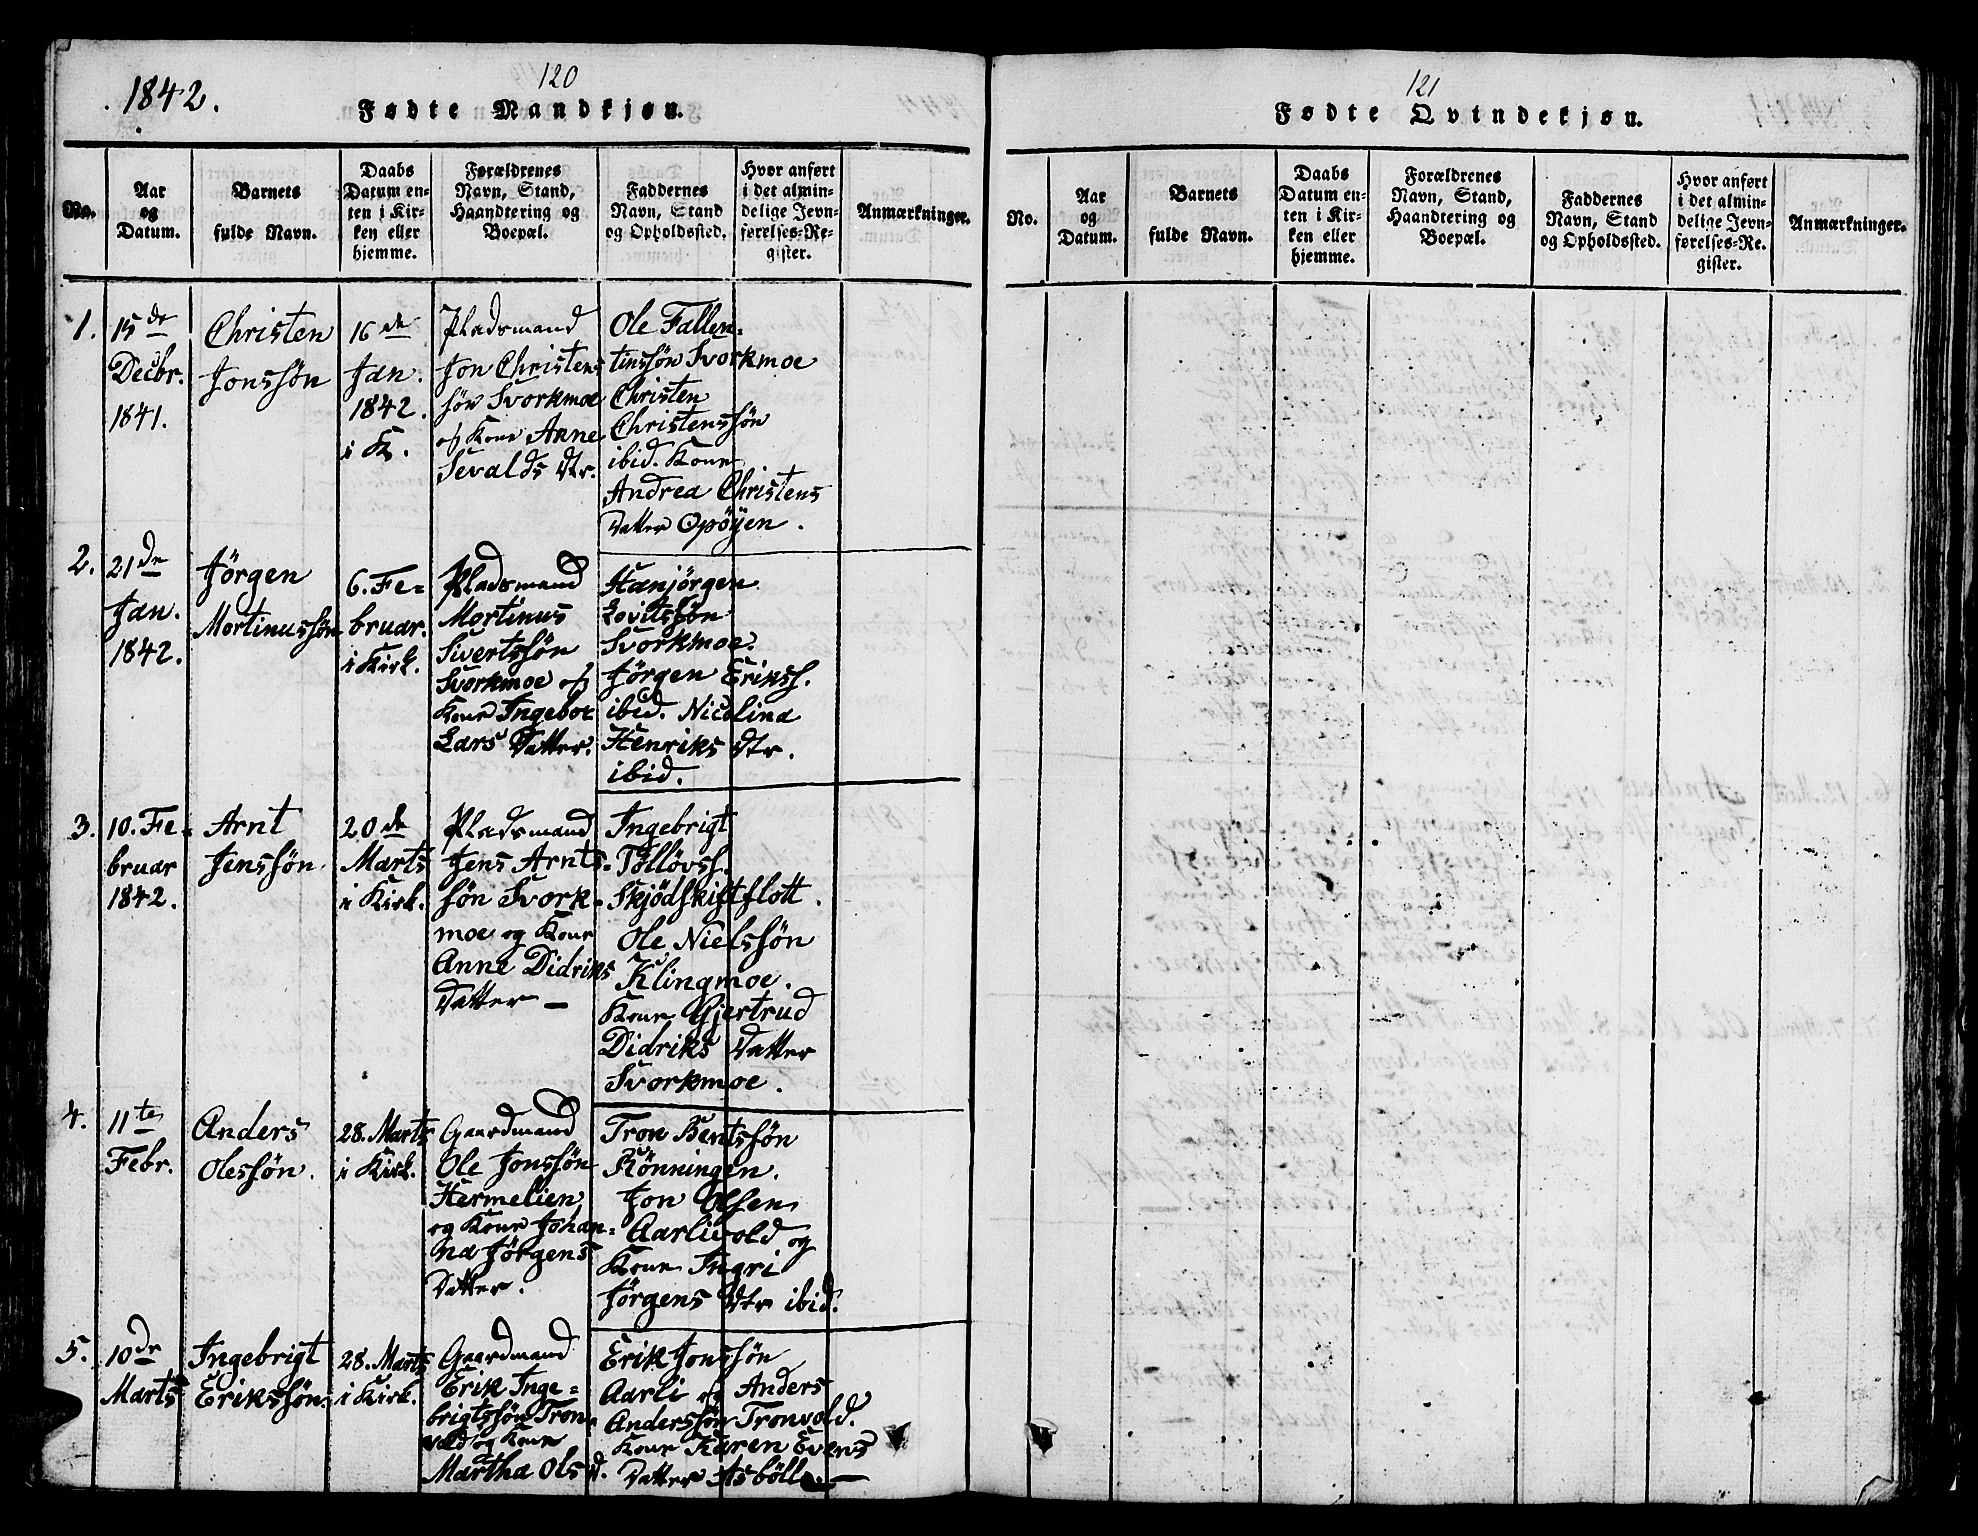 1842.
120
Fødte Mandkjøn.
No.
Aar
og
Datum.
Barnets
fulde Navn.
Daabs
Datum en-
ten i Kir-
ken eller
hjemme.
Forældrenes
Navn, Stand,
Haandtering og
Boepæl.
Faddernes
Navn, Stand
og Opholdssted.
Hvor anført
i det almin-
delige Jevn-
førelses-Re-
gister.
Anmærkninger.
1.
15de
Decbr.
1841.
Christen
Jonssøn
16de
Jan.
1842.
i K.
Pladsmand
Jon Christens
søn Svorkmoe
og Kone Anne
Sevalds Dtr.
Ole Fallen-
tinssøn Svorkmoe
Christen
Christenssøn
ibid. Kone
Andrea Christens
Datter Opøyen.
2.
21de
Jan.
1842.
Jörgen
Mortinussøn
6. Fe-
bruar.
i Kirk.
Pladsmand
Mortinus
Sivertssøn
Svorkmoe og
Kone Ingebor
Lars Datter.
Hanjörgen
Lovitssøn
Svorkmoe.
Jörgen Erikss.
ibid. Nicolina
Henriks Dtr.
ibid.
3.
10. Fe-
bruar
1842.
Arnt
Jenssøn
20de
Marts
i Kirk.
Pladsmand
Jens Arnts-
søn Svork-
moe og Kone
Anne Didriks
Datter —
Ingebrigt
Tølløvs.
Skjödskiftflott.
Ole Nielssøn
Klingmoe.
Kone Gjertrud
Didriks Datter
Svorkmoe.
4.
11te
Febr.
Anders
Olessøn.
28. Marts
i Kirk.
Gaardmand
Ole Jonssøn
Hermelien
og Kone Johan-
na Jörgens
Datter.
Tron Bentssøn
Rönningen.
Jon Olsen
Aarlivold og
Kone Ingri
Jörgens Dtr ibid.
5.
10de
Marts
Ingebrigt
Erikssøn
28. Marts
i Kirk.
Gaardmand
Erik Inge-
brigtssøn Tron-
vold og Kone
Martha Ols d.
Erik Jonssøn
Aarli og Anders
Anderssøn Tronvold.
Kone Karen Evens
Datter Asbölle. —
121
Fødte Qvindekjøn.
No.
Aar
og
Datum.
Barnets
fulde Navn.
Daabs
Datum en-
ten i Kir-
ken eller
hjemme.
Forældrenes
Navn, Stand,
Haandtering og
Boepæl.
Faddernes
Navn, Stand
og Opholdssted.
Hvor anført
i det almin-
delige Jevn-
førelses-Re-
gister.
Anmærkninger.